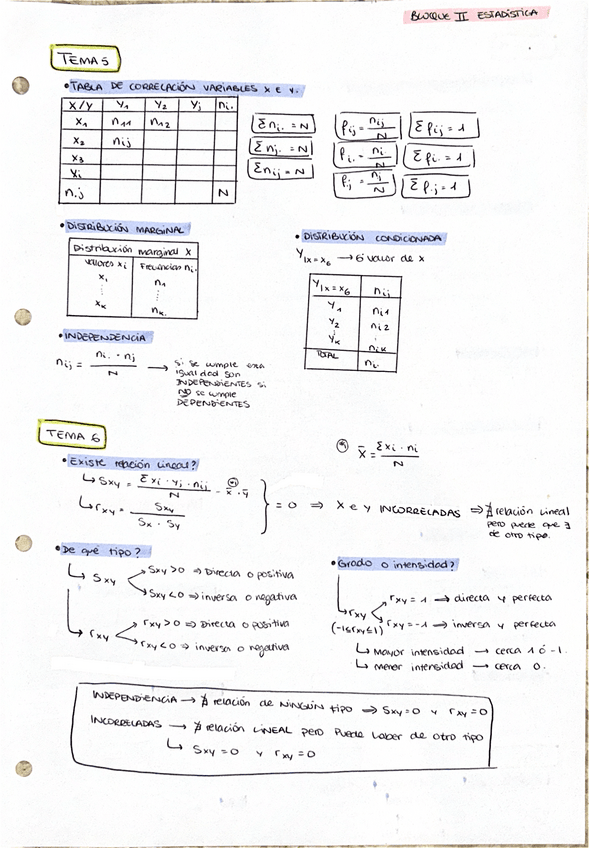 BLOQUE II ESTADÍSTICA
TEMA 5
• TABLA DE CORRELACIÓN VARIABLES X E Y.
X/Y Y₁ Y₂ Yⱼ nᵢ.
X₁ n₁₁ n₁₂
X₂ nᵢⱼ
X₃
Xᵢ
n.ⱼ N
Σnᵢ. = N
Σnⱼ. = N
Σnᵢⱼ = N
fᵢⱼ = nᵢⱼ/N Σfᵢⱼ = 1
fᵢ. = nᵢ./N Σfᵢ. = 1
f.ⱼ = nⱼ/N Σf.ⱼ = 1
• DISTRIBUCIÓN MARGINAL
Distribución marginal X
Valores xᵢ Frecuencias nᵢ.
x₁ n₁
⋮ ⋮
xₖ nₖ.
• DISTRIBUCIÓN CONDICIONADA
Y|x=x₆ → 6º valor de x
Y|x=x₆ nᵢⱼ
Y₁ nᵢ₁
Y₂ nᵢ₂
⋮
Yₖ nᵢₖ
TOTAL nᵢ.
• INDEPENDENCIA
nᵢⱼ = nᵢ. · nⱼ/N → si se cumple esta
igualdad son
INDEPENDIENTES si
NO se cumple
DEPENDIENTES
TEMA 6
x̄ = Σxᵢ · nᵢ/N
• Existe relación lineal?
↳ Sxy = Σxᵢ · yⱼ · nᵢⱼ/N - x̄ · ȳ
↳ rxy = Sxy/Sx · Sy
} = 0 ⇒ X e Y INCORRELADAS ⇒ ∄ relación lineal
pero puede que ∃
de otro tipo.
• De qué tipo?
↳ Sxy
Sxy > 0 ⇒ Directa o positiva
Sxy < 0 ⇒ inversa o negativa
↳ rxy
rxy > 0 ⇒ Directa o positiva
rxy < 0 ⇒ inversa o negativa
• Grado o intensidad?
↳ rxy
(-1≤rxy≤1)
rxy = 1 → directa y perfecta
rxy = -1 → inversa y perfecta
↳ Mayor intensidad → cerca 1 ó -1.
↳ menor intensidad → cerca 0.
INDEPENDIENCIA → ∄ relación de NINGÚN tipo ⇒ Sxy = 0 y rxy = 0
INCORRELADAS → ∄ relación LINEAL pero puede haber de otro tipo
↳ Sxy = 0 y rxy = 0